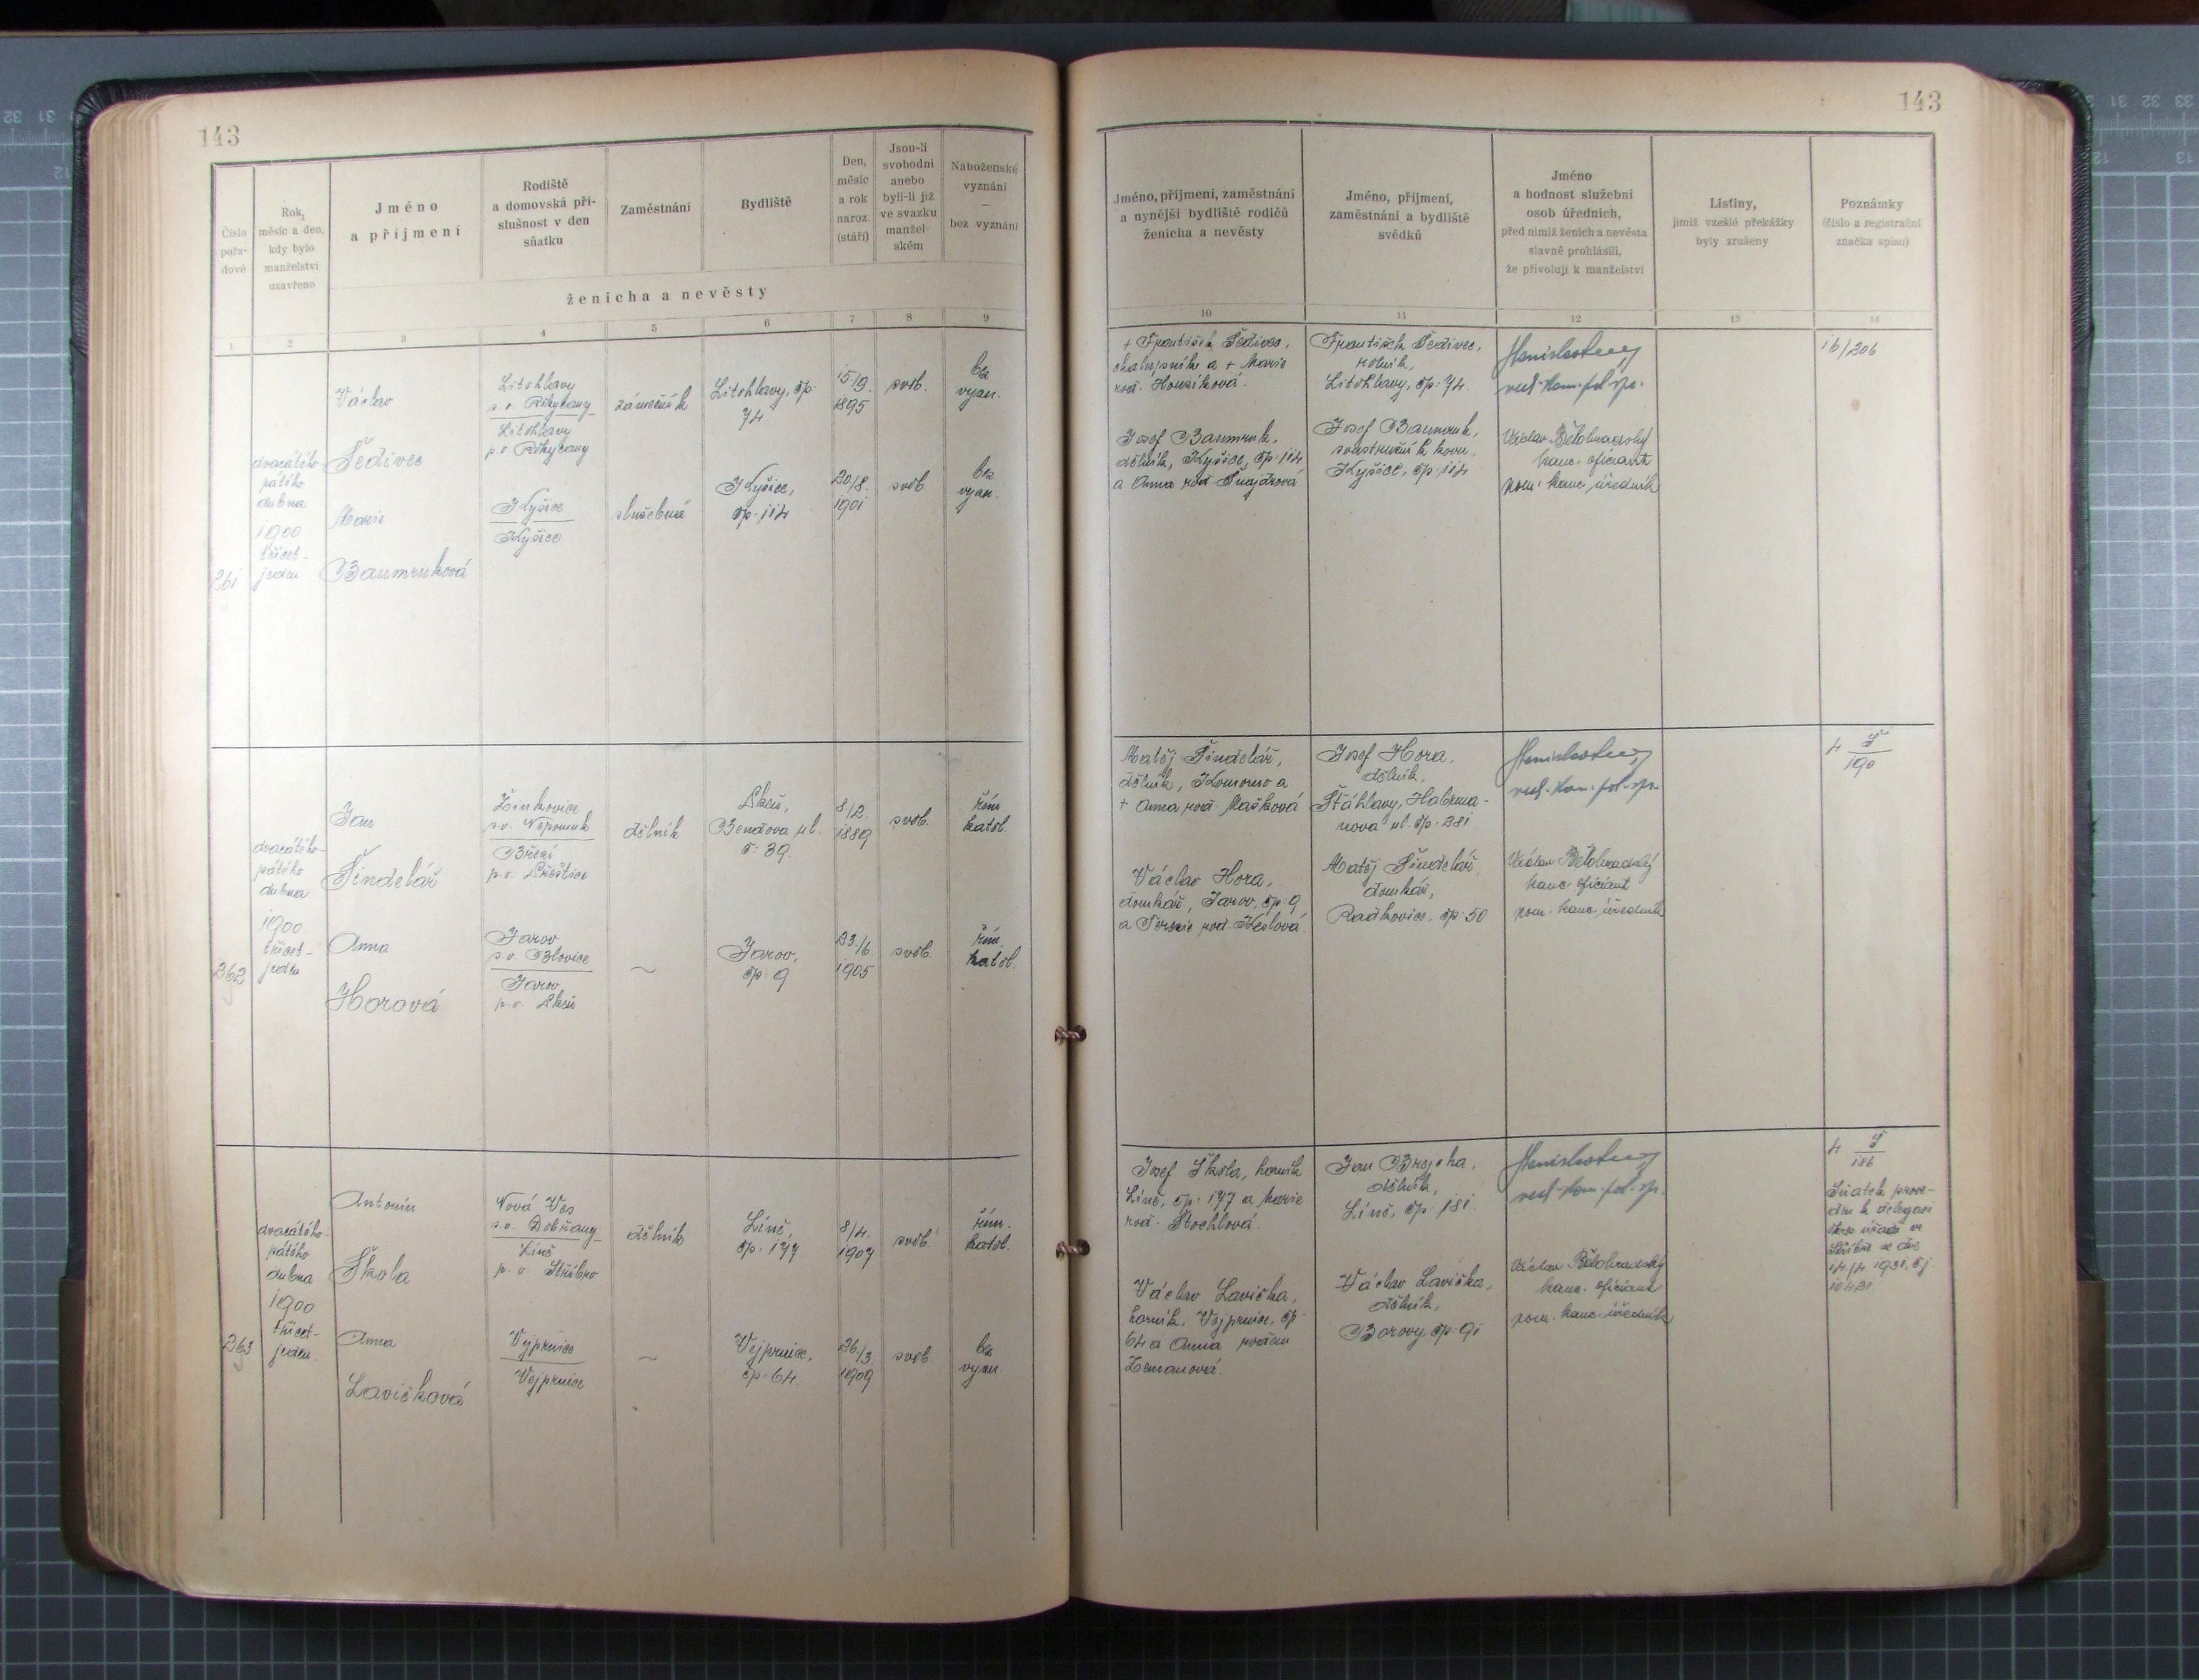 143
Číslo
pořa-
dové
Rok,
měsíc a den,
kdy bylo
manželství
uzavřeno
Jméno
a příjmení
Rodiště
a domovská pří-
slušnost v den
sňatku
Zaměstnání
Bydliště
Den,
měsíc
a rok
naroz.
(stáří)
Jsou-li
svobodni
anebo
byli-li již
ve svazku
manžel-
ském
Náboženské
vyznání
—
bez vyznání
ženicha a nevěsty
1 2 3 4 5 6 7 8 9
261
dvacátého-
pátého
dubna
1900
třicet-
jeden
Václav
Šedivec
Litohlavy
s.o. Rokycany
Litohlavy
p.o. Rokycany
zámečník
Litohlavy, čp.
74
15./9.
1895
svob.
bez
vyzn.
Marie
Baumruková
Kyšice
Kyšice
služebná
Kyšice,
čp. 114
20/8.
1901
svob.
bez
vyzn.
262
dvacátého-
pátého
dubna
1900
třicet-
jeden
Jan
Šindelář
Žinkovice
s.o. Nepomuk
p.o. Přeštice
dělník
Plzeň,
Bendova ul.
č. 39.
8/2.
1889
svob.
řím.
katol.
Anna
Horová
Jarov
s.o. Blovice
Jarov,
p.o. Plzeň
~
Jarov,
čp. 9
23./6.
1905
svob.
řím.
katol.
263
dvacátého-
pátého
dubna
1900
třicet-
jeden.
Antonín
Škola
Nová Ves
s.o. Dobřany
Líně
p.o. Stříbro
dělník
Líně,
čp. 177
8/4.
1907
svob.
řím.
katol.
Anna
Lavičková
Vejprnice
Vejprnice
~
Vejprnice,
čp. 64.
26./3.
1909
svob.
bez
vyzn.
143
Jméno, příjmení, zaměstnání
a nynější bydliště rodičů
ženicha a nevěsty
Jméno, příjmení,
zaměstnání a bydliště
svědků
Jméno
a hodnost služební
osob úředních,
před nimiž ženich a nevěsta
slavně prohlásili,
že přivolují k manželství
Listiny,
jimiž vzešlé překážky
byly zrušeny
Poznámky
(číslo a registrační
značka spisu)
10 11 12 13 14
+ František Šedivec,
chalupník a + Marie
rod. Housíková.
František Šedivec,
rolník,
Litohlavy, čp. 74.
16/206
Josef Baumruk,
dělník, Kyšice, čp. 114
a Anna rod. Šnajdrová
Josef Baumruk,
soustružník kovu,
Kyšice, čp. 114
Václav Bělohradský
kanc. oficiant
pom. kanc. úředník
Matěj Šindelář,
dělník, Komorno a
+ Anna rod. Mašková
Josef Hora,
dělník,
Šťáhlavy, Haberma-
nova ul. čp. 281
4 Š
190
Václav Hora,
domkář, Jarov, čp. 9
a Terezie rod.
Matěj Šindelář,
domkář,
Radkovice, čp. 50
Václav Bělohradský
kanc. oficiant
pom. kanc. úředník
Josef Škola, horník
Líně, čp. 177 a Marie
rod. Štochlová.
Jan Brejcha,
dělník,
Líně, čp. 181.
4 Š
186
Sňatek prove-
den k delegaci
okres. úřadu ve
Stříbře ze dne
14/4 1931, čj.
10431.
Václav Lavička,
horník, Vejprnice, čp.
64 a Anna rozená
Zemanová.
Václav Lavička,
dělník,
Borovy, čp. 91
Václav Bělohradský
kanc. oficiant
pom. kanc. úředník